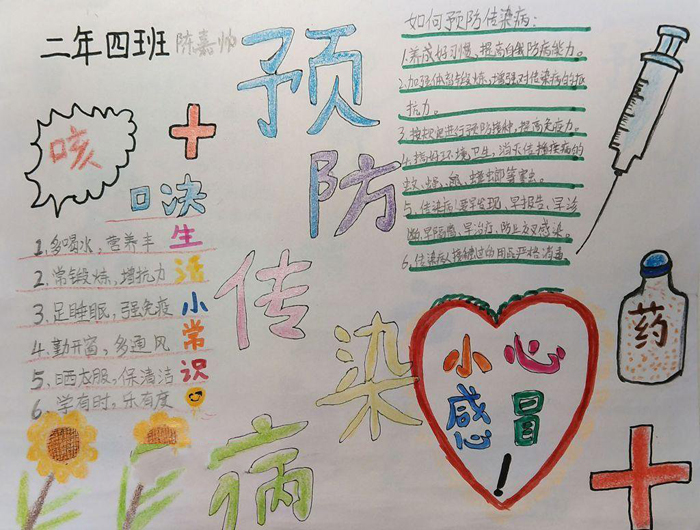 二年四班 陈嘉帅
预防传染病
咳
口决
1.多喝水,营养丰
2.常锻炼,增抗力
3.足睡眠,强免疫
4.勤开窗,多通风
5.晒衣服,保清洁
6.学有时,乐有度
生活小常识
如何预防传染病:
1.养成好习惯,提高自我防病能力。
2.加强体育锻炼,增强对传染病的抵
抗力。
3.按规定进行预防接种,提高免疫力。
4.搞好环境卫生,消灭传播疾病的
蚊、蝇、鼠、蟑螂等害虫。
5.传染病要早发现,早报告,早诊
断,早隔离,早治疗,防止交叉感染。
6.传染病人接触过的用品严格消毒
小心
感冒
!
药